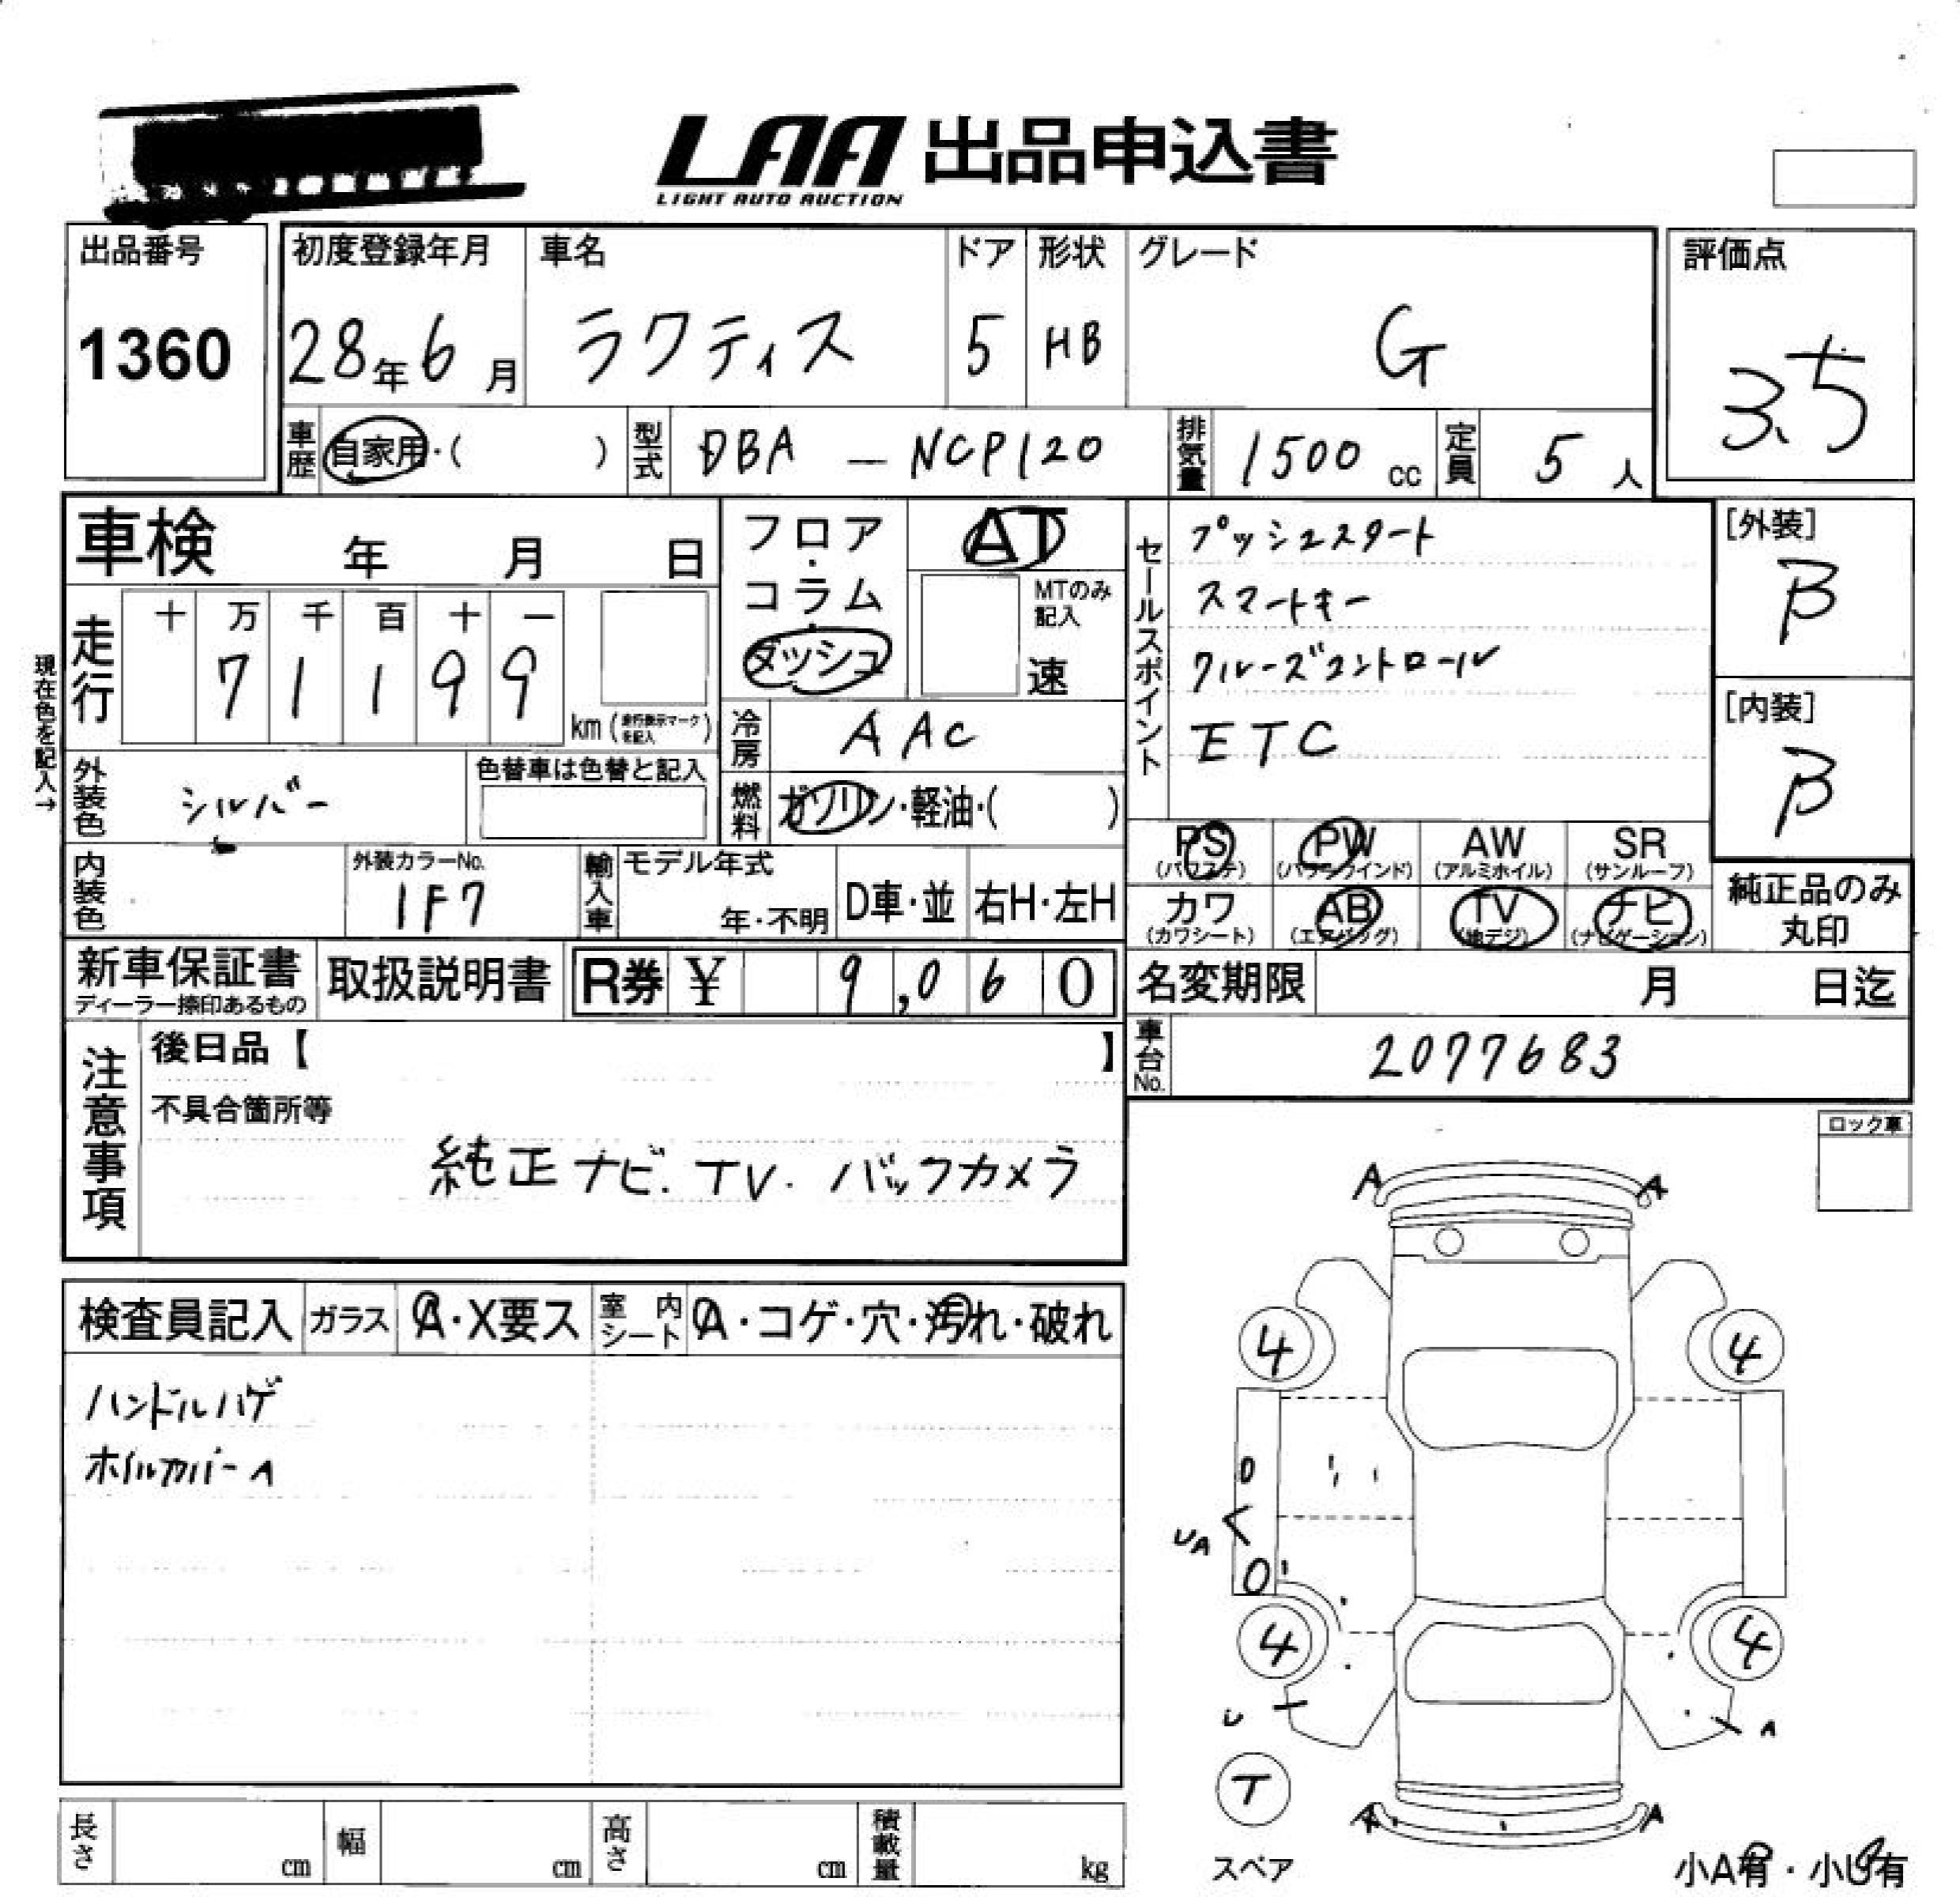 LAA 出品申込書
LIGHT AUTO AUCTION
出品番号
1360
初度登録年月
28年6月
車名
ラクティス
ドア
5
形状
HB
グレード
G
評価点
3.5
車歴
自家用・( )
型式
DBA - NCP120
排気量
1500 cc
定員
5 人
車検 年 月 日
フロア・コラム・ダッシュ
AT
MTのみ記入
速
セールスポイント
プッシュスタート
スマートキー
クルーズコントロール
ETC
[外装]
B
[内装]
B
現在色を記入→
走行
十 万 千 百 十 一
7 1 1 9 9
km (走行表示マークを記入)
冷房
AAC
外装色
シルバー
色替車は色替と記入
燃料
ガソリン・軽油・( )
PS
(パワステ)
PW
(パワーウインド)
AW
(アルミホイル)
SR
(サンルーフ)
カワ
(カワシート)
AB
(エアバッグ)
TV
(地デジ)
ナビ
(ナビゲーション)
純正品のみ丸印
内装色
外装カラーNo.
1F7
輸入車
モデル年式
年・不明
D車・並
右H・左H
新車保証書
ディーラー捺印あるもの
取扱説明書
R券 ¥ 9,060
名変期限 月 日迄
車台No.
2077683
注意事項
後日品【 】
不具合箇所等
純正ナビ. TV. バックカメラ
ロック車
検査員記入
ガラス
A・X要ス
室内シート
A・コゲ・穴・汚れ・破れ
ハンドルハゲ
ホイルカバーA
A A
4 4
UA
4 4
U A
T
スペア
A A
小A有・小U有
長さ cm
幅 cm
高さ cm
積載量 kg